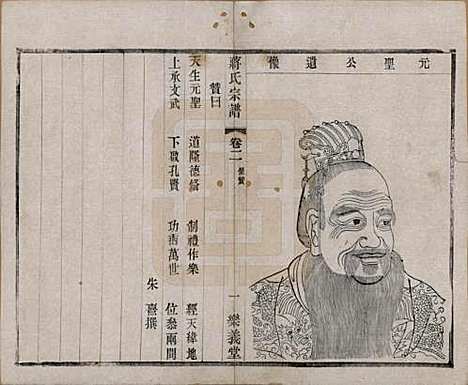 元聖公遺像
蔣氏宗譜 卷二 像贊 一 樂義堂
贊曰
天生元聖 道隆德 制禮作樂 經天緯地
上承文武 下啟孔賢 功萬世 位參兩間
朱熹撰